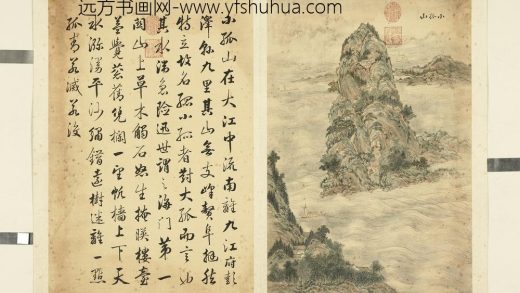 远方书画网-www.yfshuhua.com
小孤山
小孤山在大江中流南離九江府彭
澤縣九里其山無支峰贅阜挺然
特立故名孤小孤者對大孤而言也
其水湍急險迅世謂之海門第一
關山上草木觸石生掩映樓臺
蒼蒨繞欄一望帆檣上下天
水漾平沙錯遠樹迷離一點
孤青若滅若沒